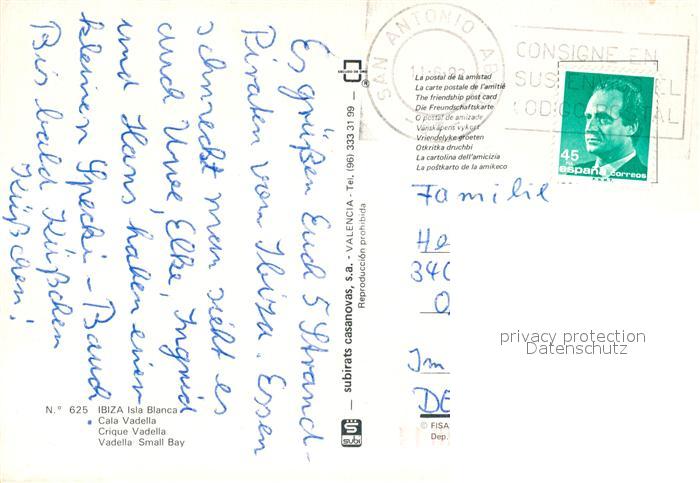 Es grüßen Euch 5 Strand-
Piraten vom Ibiza. Essen
schmeckt man sieht es
auch Uwe, Elke, Ingrid
und Hans haben einen
kleinen Specki - Bauch.
Bis bald Küßchen
Küßchen!
N.° 625 IBIZA Isla Blanca
Cala Vadella
Crique Vadella
Vadella Small Bay
subirats casanovas, s.a. - VALENCIA - Tel. (96) 333 31 99 -
Reproducción prohibida
subi
SAN ANTONIO AB
CONSIGNE EN
SUS EN EL
CODIGO POSTAL
La postal de la amistad
La carte postale de l'amitié
The friendship post card
Die Freundschaftskarte
O postal de amizade
Vänskapens vykort
Vriendelijke groeten
Otkritka druchbi
La cartolina dell'amicizia
La poŝtkarto de la amikeco
45
PTA
españa correos
Familie
He
340
O
Im
DE
privacy protection
Datenschutz
© FISA
Dep.